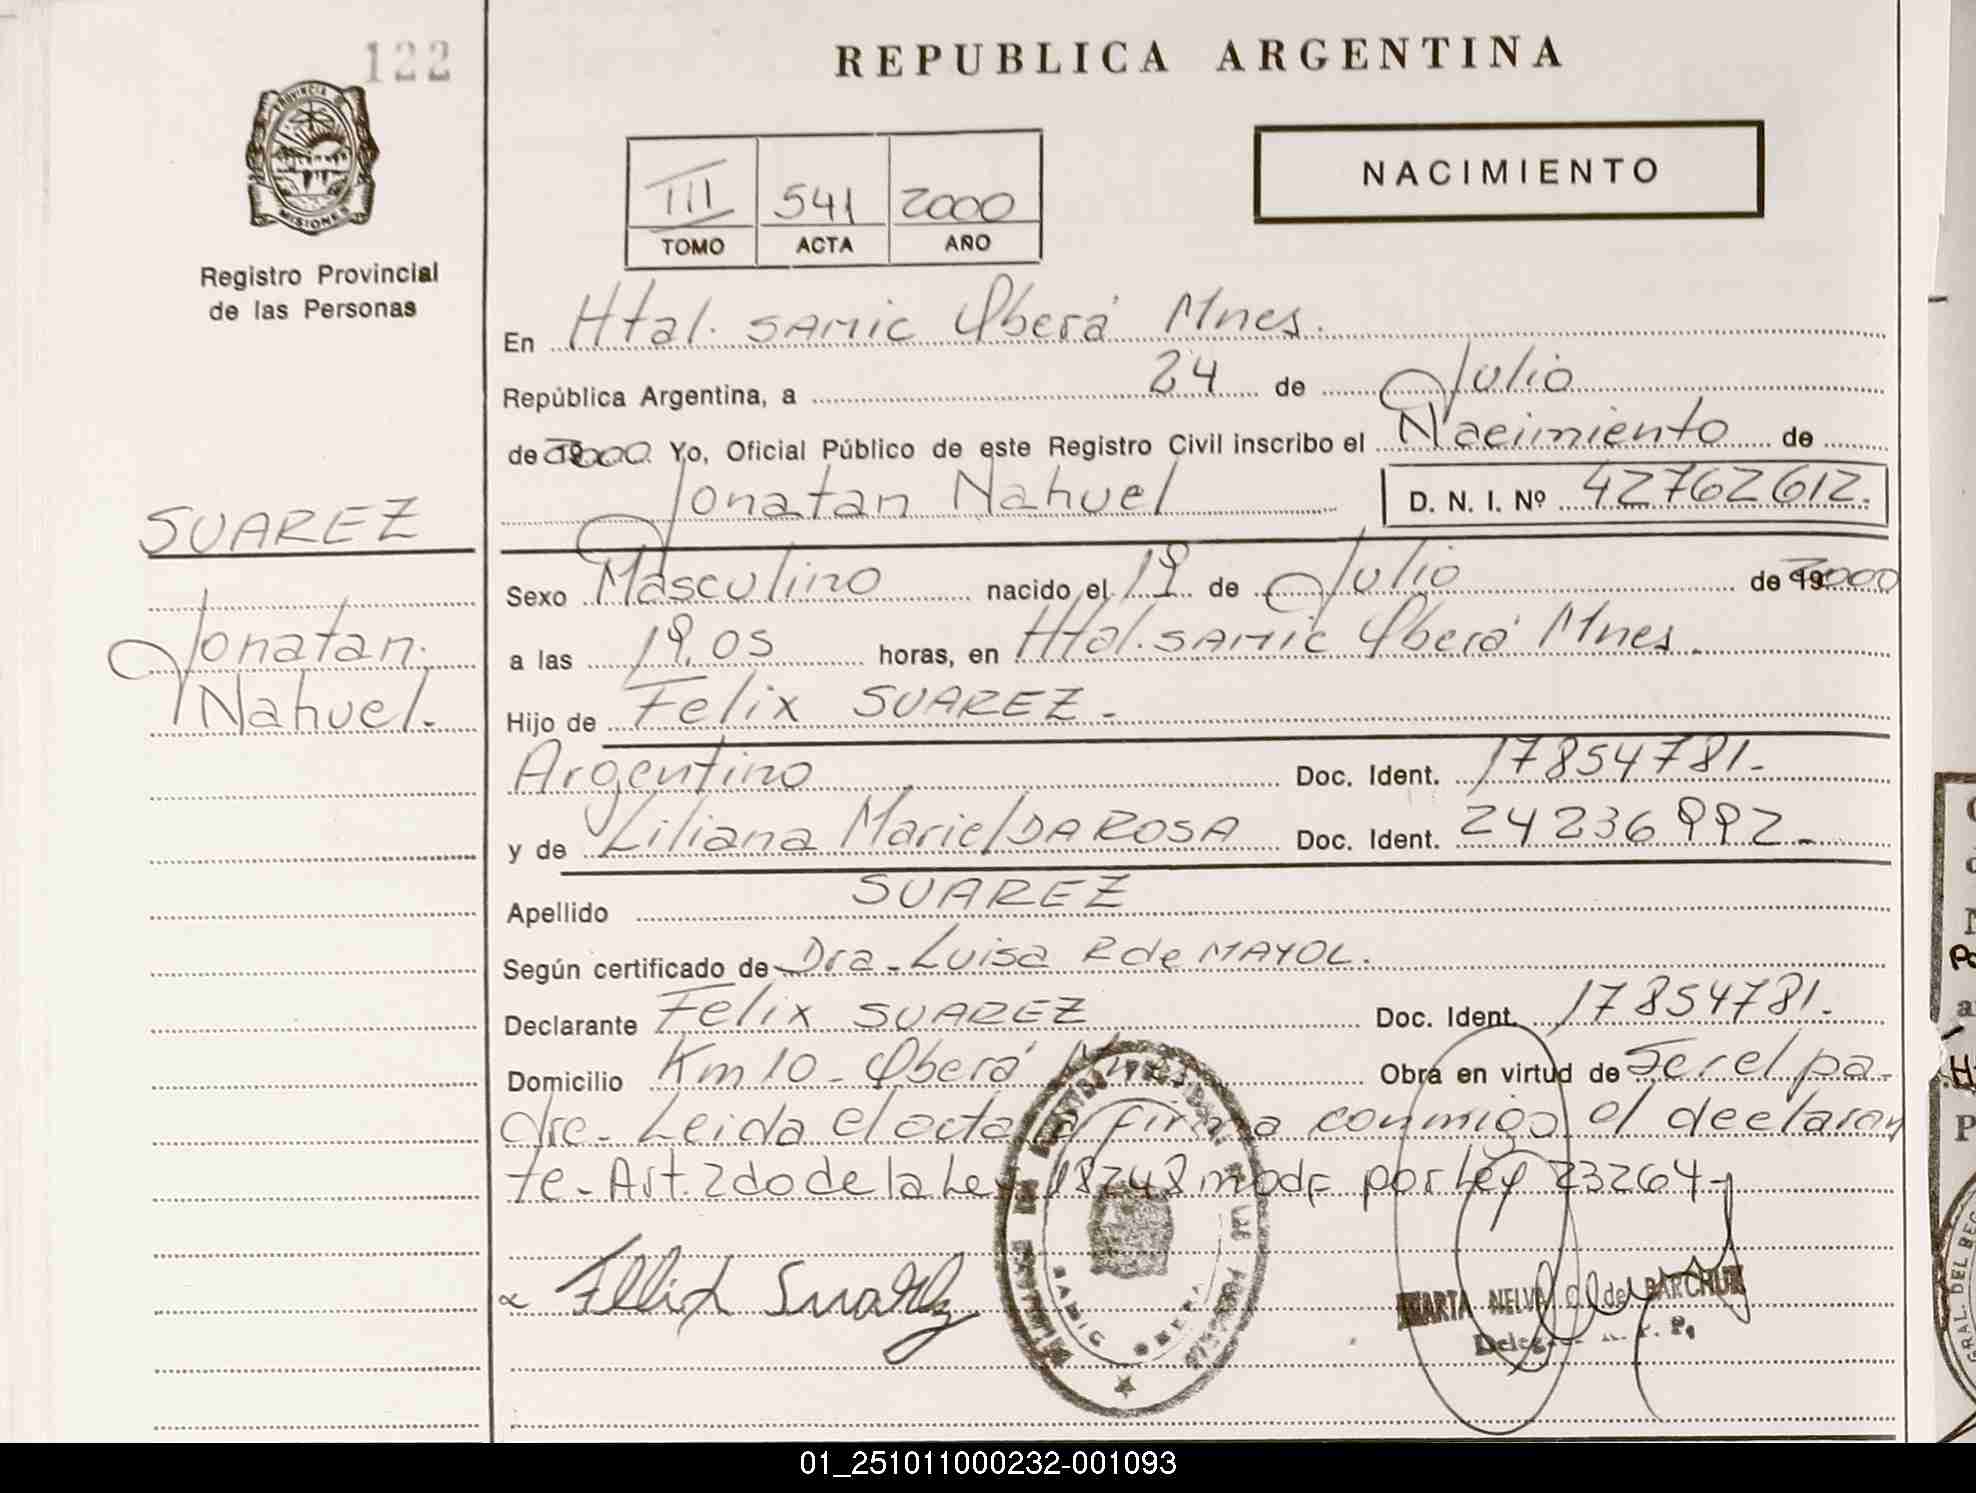 122
REPUBLICA ARGENTINA
PROVINCIA DE
MISIONES
NACIMIENTO
III 541 2000
TOMO ACTA AÑO
Registro Provincial
de las Personas
En Htal. SAMIC Oberá Mnes.
República Argentina, a 24 de Julio
de 2000 Yo, Oficial Público de este Registro Civil inscribo el Nacimiento de
Jonatan Nahuel D. N. I. Nº 42762612.
SUAREZ
Jonatan
Nahuel.
Sexo Masculino nacido el 19 de Julio de 2000
a las 19,05 horas, en Htal. SAMIC Oberá Mnes.
Hijo de Felix SUAREZ.-
Argentino Doc. Ident. 17854781.
y de Liliana Mariel DA ROSA Doc. Ident. 24236992.-
Apellido SUAREZ
Según certificado de Dra. Luisa R de MAYOL.
Declarante Felix SUAREZ Doc. Ident. 17854781.
Domicilio Km 10 - Oberá Mnes Obra en virtud de Ser el pa-
dre. Leida el acta firma conmigo el declaran
te. Art. 2do de la Ley 18248 modf por Ley 23264-
Felix Suarez
SAMIC OBERA
MARTA NELVA de BARCHUK
01_251011000232-001093